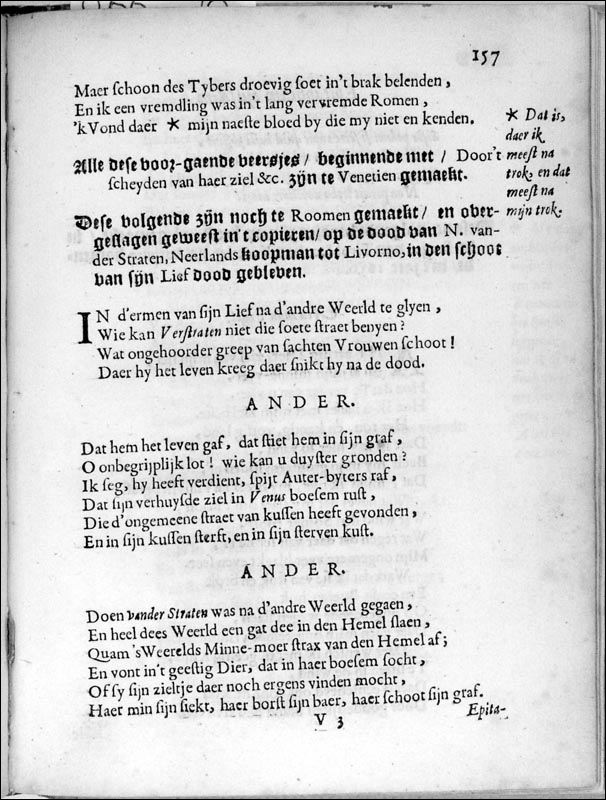 157
Maer schoon des Tybers droevig soet in't brak belenden,
En ik een vremdling was in't lang vervremde Romen,
'kVond daer * mijn naeste bloed by die my niet en kenden.
* Dat is,
daer ik
meest na
trok, en dat
meest na
mijn trok.
Alle dese voor-gaende veersjes / beginnende met / Door't
scheyden van haer ziel &c. zijn te Venetien gemaekt.
Dese volgende zijn noch te Roomen gemaekt / en over-
geslagen geweest in't copieren / op de dood van N. van-
der Straten, Neerlands koopman tot Livorno, in den schoot
van sijn Lief dood gebleven.
IN d'ermen van sijn Lief na d'andre Weerld te glyen,
Wie kan Verstraten niet die soete straet benyen?
Wat ongehoorder greep van sachten Vrouwen schoot!
Daer hy het leven kreeg daer snikt hy na de dood.
ANDER.
Dat hem het leven gaf, dat stiet hem in sijn graf,
O onbegrijplijk lot! wie kan u duyster gronden?
Ik seg, hy heeft verdient, spijt Auter-byters raf,
Dat sijn verhuysde ziel in Venus boesem rust,
Die d'ongemeene straet van kussen heeft gevonden,
En in sijn kussen sterft, en in sijn sterven kust.
ANDER.
Doen vander Straten was na d'andre Weerld gegaen,
En heel dees Weerld een gat dee in den Hemel slaen,
Quam 'sWeerelds Minne-moer strax van den Hemel af;
En vont in't geestig Dier, dat in haer boesem socht,
Of sy sijn zieltje daer noch ergens vinden mocht,
Haer min sijn siekt, haer borst sijn baer, haer schoot sijn graf.
V 3
Epita-